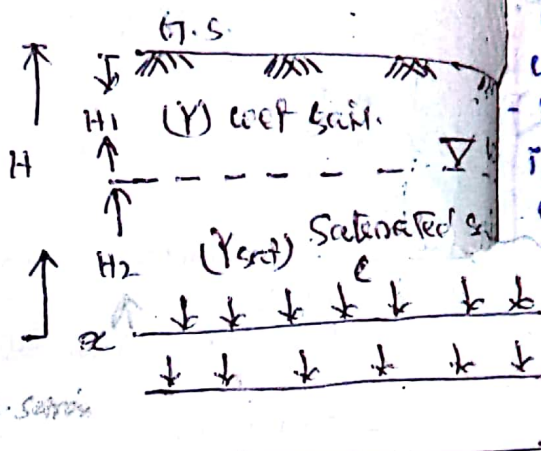 G.S.
H1 (γ) wet soil.
H
H2 (γsat) Saturated s
x